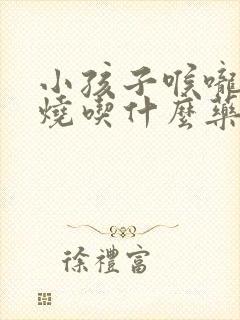 小孩子喉嚨
燒喫什麼藥
徐禮富